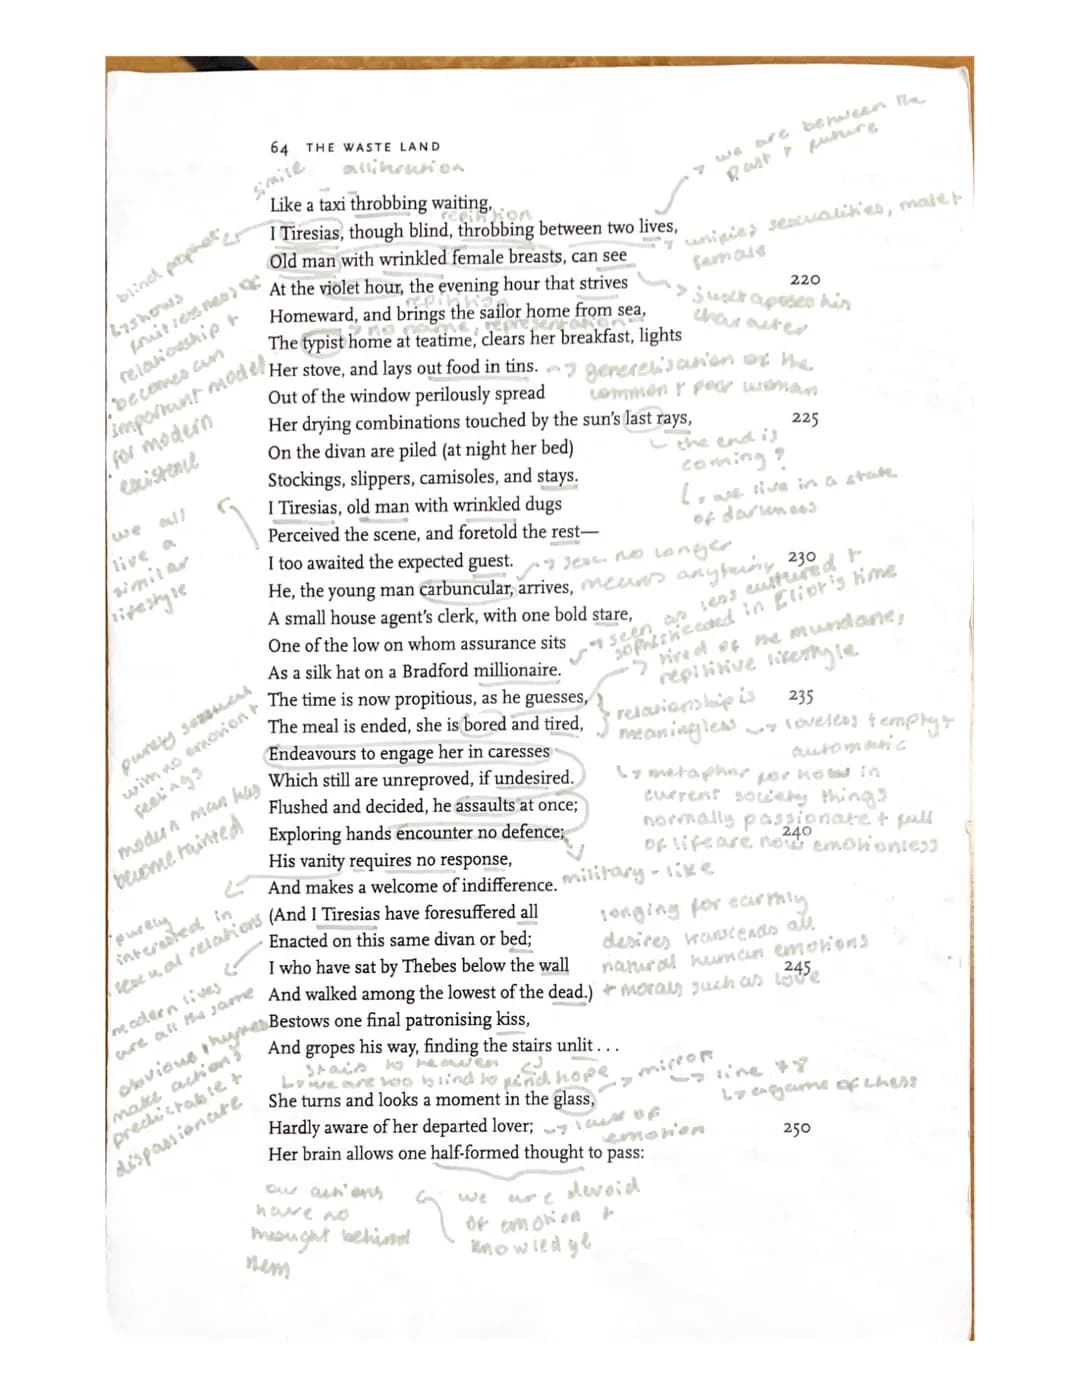 64 THE WASTE LAND
simile
we are between the
past + future
Like a taxi throbbing waiting,
I Tiresias, though blind, throbbing between two lives,
Old man with wrinkled female breasts, can see
At the violet hour, the evening hour that strives 220
Homeward, and brings the sailor home from sea,
The typist home at teatime, clears her breakfast, lights
Her stove, and lays out food in tins.
Out of the window perilously spread
Her drying combinations touched by the sun's last rays, 225
On the divan are piled (at night her bed)
Stockings, slippers, camisoles, and stays.
I Tiresias, old man with wrinkled dugs
Perceived the scene, and foretold the rest—
I too awaited the expected guest. 230
He, the young man carbuncular, arrives,
A small house agent's clerk, with one bold stare,
One of the low on whom assurance sits
As a silk hat on a Bradford millionaire.
The time is now propitious, as he guesses, 235
The meal is ended, she is bored and tired,
Endeavours to engage her in caresses
Which still are unreproved, if undesired.
Flushed and decided, he assaults at once;
Exploring hands encounter no defence; 240
His vanity requires no response,
And makes a welcome of indifference.
(And I Tiresias have foresuffered all
Enacted on this same divan or bed;
I who have sat by Thebes below the wall 245
And walked among the lowest of the dead.)
Bestows one final patronising kiss,
And gropes his way, finding the stairs unlit . . .
She turns and looks a moment in the glass,
Hardly aware of her departed lover; 250
Her brain allows one half-formed thought to pass:
female
juxtaposes his
character
common + poor woman
the end is
coming?
we live in a state
of darkness
sex no longer
means anything
tired of the mundane,
relationship is
meaningless
loveless + empty +
automatic
current society things
normally passionate + full
of life are now emotionless
military-like
longing for earthly
desires transcends all
natural human emotions
+ morals such as love
we are too blind to find hope
mirror
emotion
we are devoid
of emotion +
knowledge
our actions
have no
thought behind
them
shows
relationship +
for modern
we all
live a
similar
lifestyle
modern man has
become tainted
purely
interested in
sexual relations
modern lives
are all the same
obvious rhymes
make actions
predictable +
dispassionate